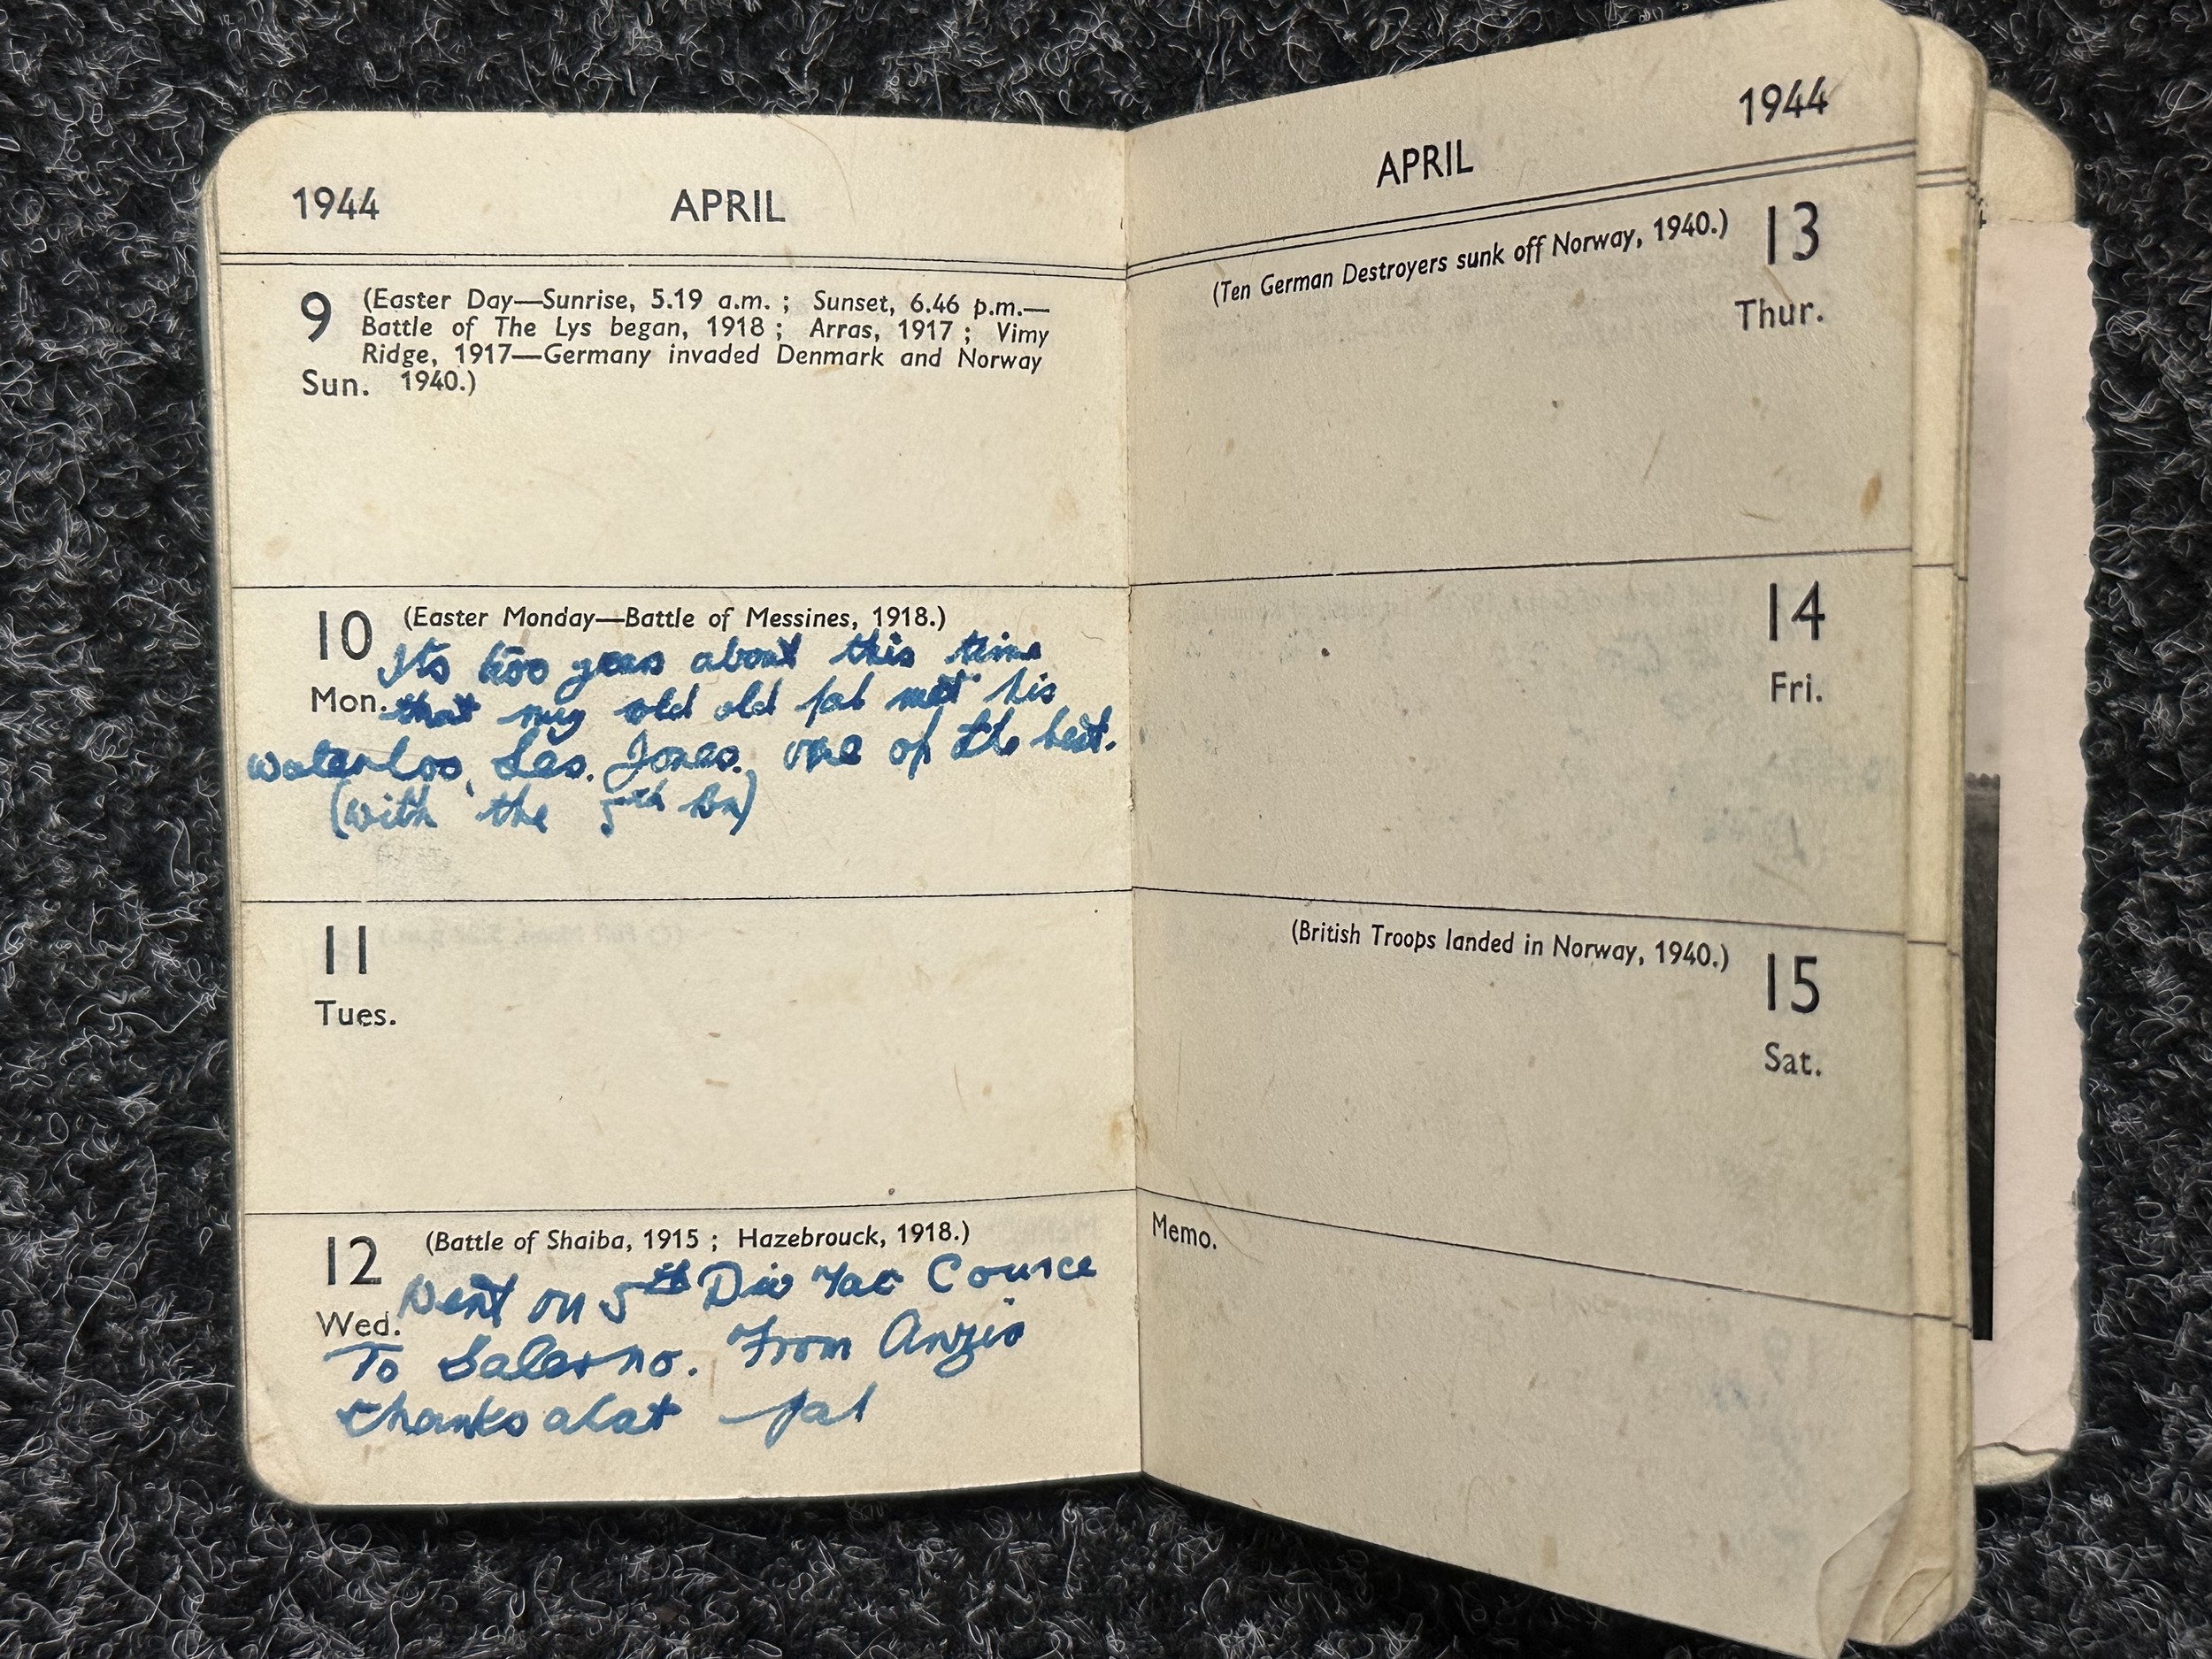 1944 APRIL
9 (Easter Day—Sunrise, 5.19 a.m. ; Sunset, 6.46 p.m.—
Battle of The Lys began, 1918 ; Arras, 1917 ; Vimy
Ridge, 1917—Germany invaded Denmark and Norway
Sun. 1940.)
10 (Easter Monday—Battle of Messines, 1918.)
Its too years about this time
Mon. that my old old pal met his
waterloo, Les. Jones. one of the best.
(with the 5th Bn)
11
Tues.
12 (Battle of Shaiba, 1915 ; Hazebrouck, 1918.)
Went on 5th Div Tac Cource
Wed.
To Salerno. From Anzio
thanks alat pal
APRIL 1944
(Ten German Destroyers sunk off Norway, 1940.) 13
Thur.
14
Fri.
(British Troops landed in Norway, 1940.) 15
Sat.
Memo.